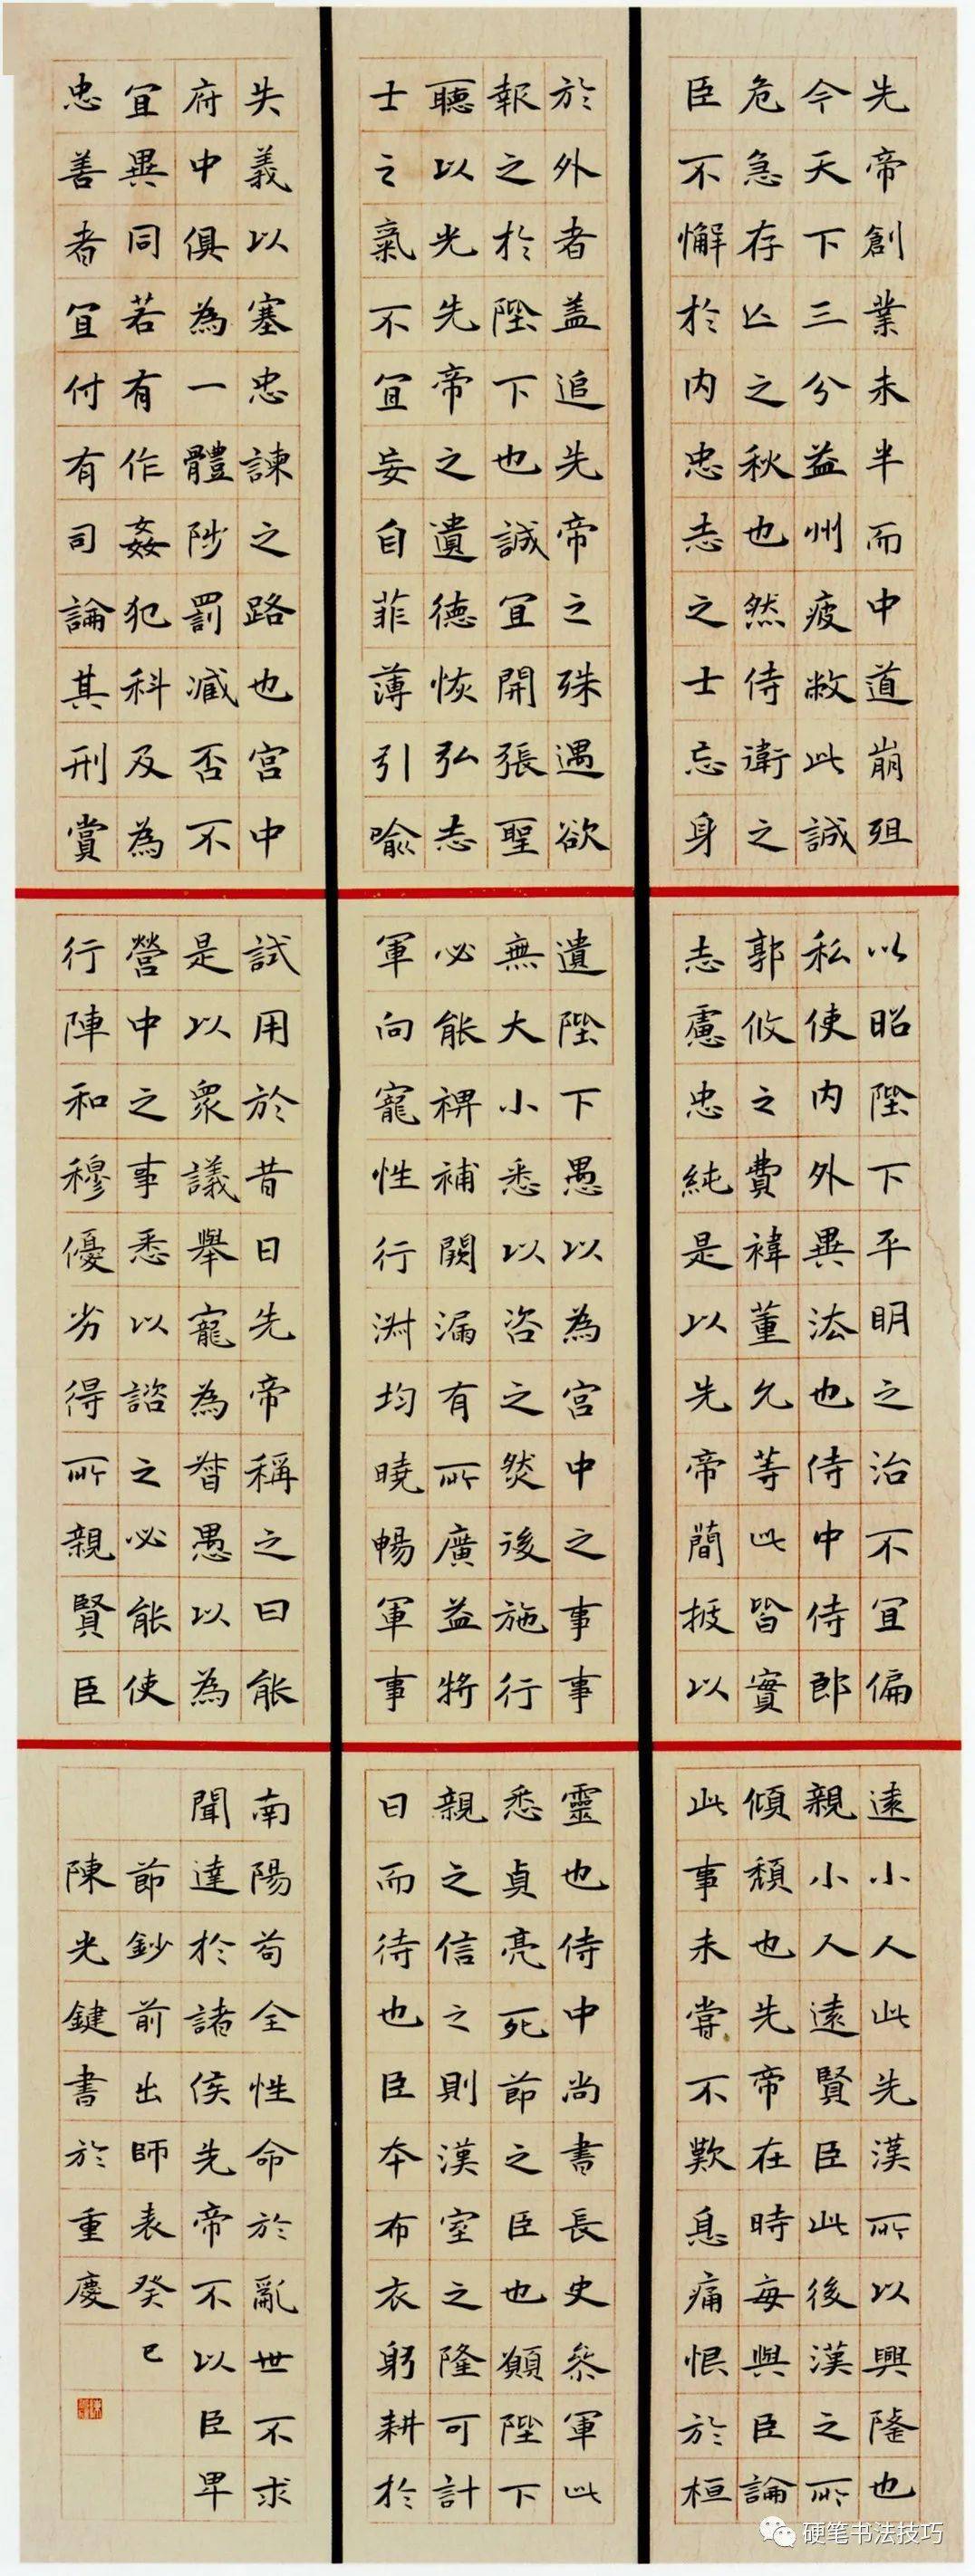 先帝創業未半而中道崩殂
今天下三分益州疲敝此誠
危急存亡之秋也然侍衛之
臣不懈於內忠志之士忘身
於外者盖追先帝之殊遇欲
報之於陛下也誠宜開張聖
聽以光先帝之遺德恢弘志
士之氣不宜妄自菲薄引喻
失義以塞忠諫之路也宮中
府中俱為一體陟罰臧否不
宜異同若有作姦犯科及為
忠善者宜付有司論其刑賞
以昭陛下平明之治不宜偏
私使內外異法也侍中侍郎
郭攸之費禕董允等此皆實
志慮忠純是以先帝簡拔以
遺陛下愚以為宮中之事事
無大小悉以咨之然後施行
必能裨補闕漏有所廣益將
軍向寵性行淑均曉暢軍事
試用於昔日先帝稱之曰能
是以眾議舉寵為督愚以為
營中之事悉以諮之必能使
行陣和穆優劣得所親賢臣
遠小人此先漢所以興隆也
親小人遠賢臣此後漢之所
傾頹也先帝在時每與臣論
此事未嘗不歎息痛恨於桓
靈也侍中尚書長史參軍此
悉貞亮死節之臣也願陛下
親之信之則漢室之隆可計
日而待也臣本布衣躬耕於
南陽苟全性命於亂世不求
聞達於諸侯先帝不以臣卑
節鈔前出師表癸巳
陳光鍵書於重慶
硬笔书法技巧